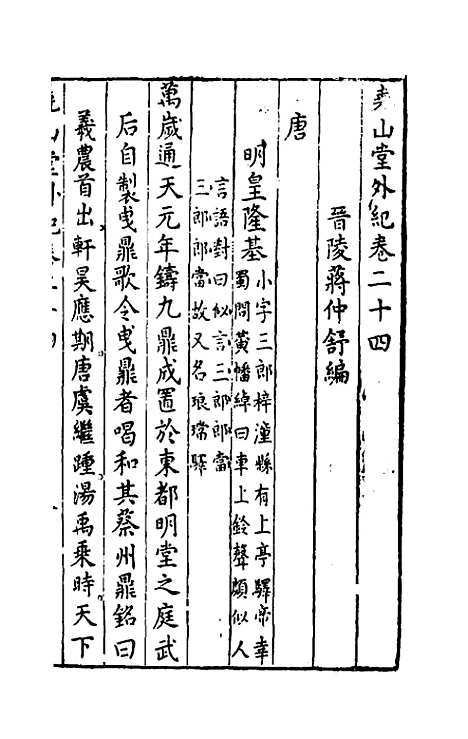 堯山堂外紀卷二十四
晉陵蔣仲舒編
唐
明皇隆基
小字三郎梓潼縣有上亭驛帝幸
蜀問黃幡綽曰車上鈴聲頗似人
言語對曰似言三郎郎當
三郎郎當故又名琅璫驛
萬歲通天元年鑄九鼎成置於東都明堂之庭武
后自製曳鼎歌令曳鼎者唱和其蔡州鼎銘曰
羲農首出軒昊應期唐虞繼踵湯禹乘時天下